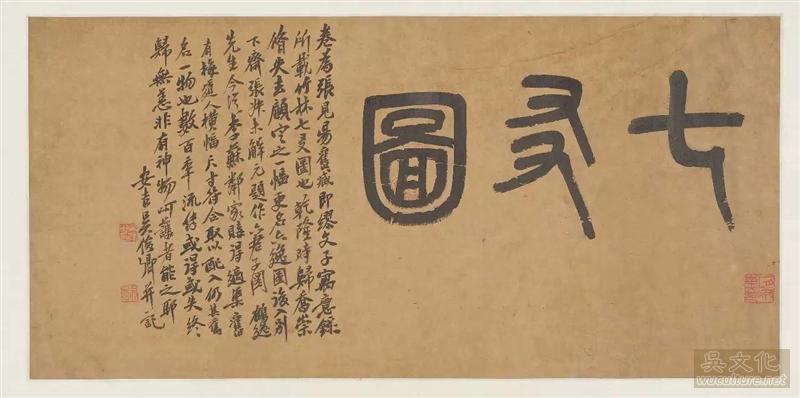 七友圖
卷為張見陽舊藏即繆文子寓意錄
所載竹林七友圖也乾隆時歸奮崇
脩失去顧定之一幅更名六逸圖後入別
下齋張叔未解元題作六君子圖 鶴逸
先生今從李蘇鄰家購得適集舊
有梅道人橫幅尺寸符合取以配入仍其舊
名一物也數百年流傳或得或失終
歸無恙非有神物呵護者能之耶
安吉吳俊卿并記
吳文化
wuculture.net